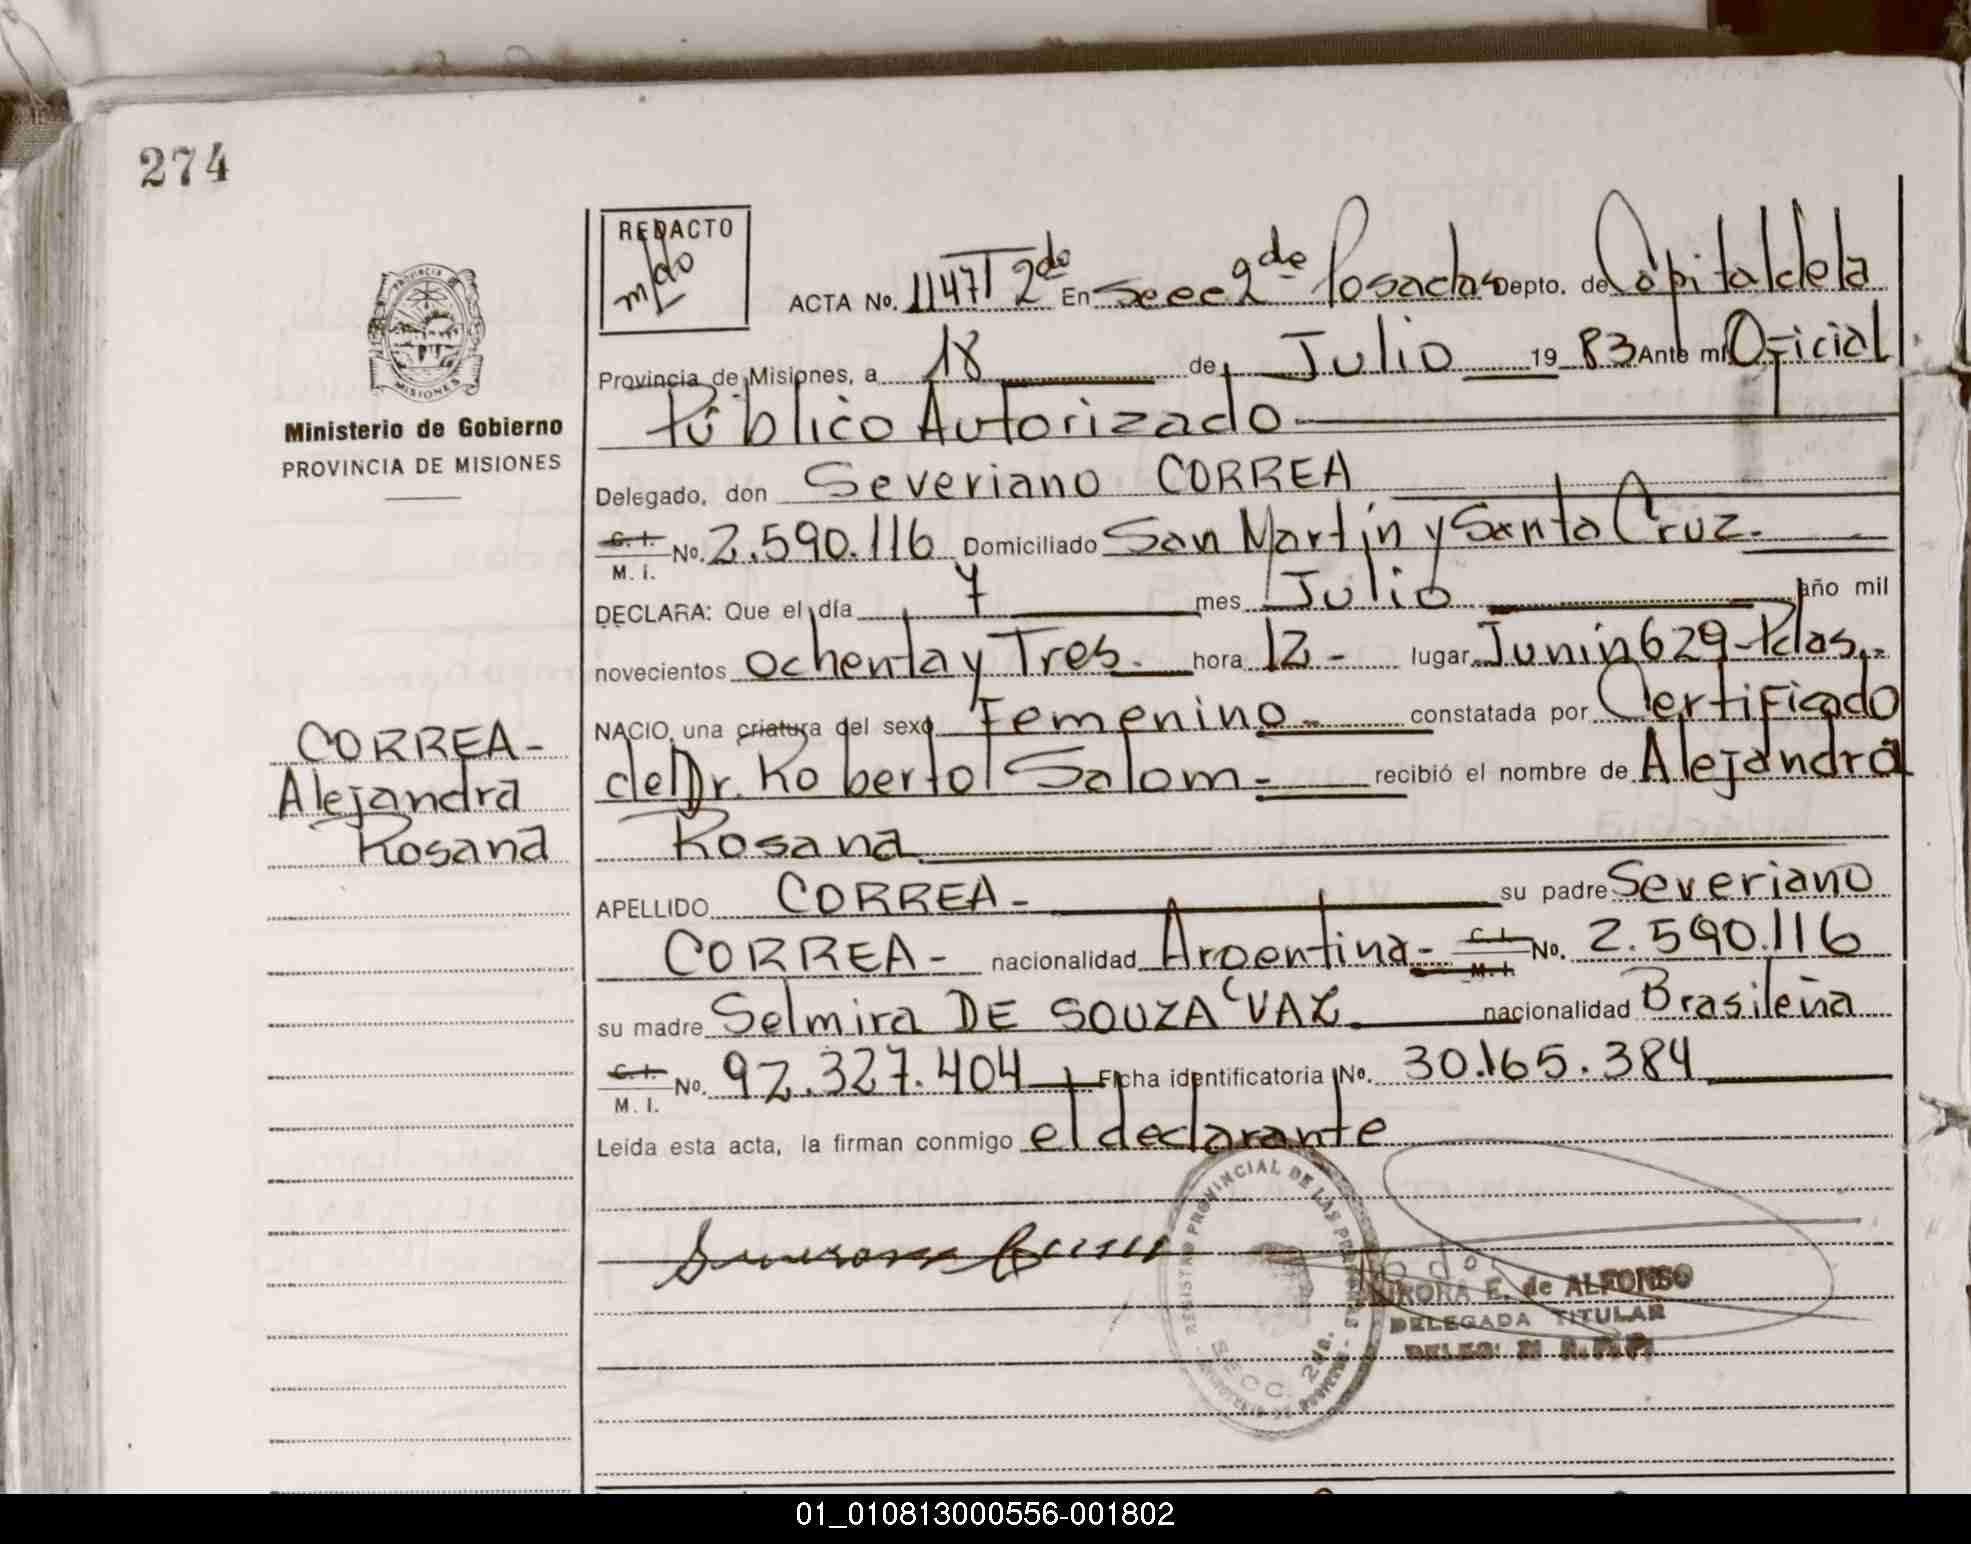 274
REDACTO
mdo
PROVINCIA
MISIONES
Ministerio de Gobierno
PROVINCIA DE MISIONES
ACTA No. 1147 T 2do En Secc 2da Posadas Depto. de Capital de la
Provincia de Misiones, a 18 de Julio 19 83 Ante mí Oficial
Público Autorizado
Delegado, don Severiano CORREA
C. I.
M. I. No. 2.590.116 Domiciliado San Martín y Santa Cruz.
DECLARA: Que el día 7 mes Julio año mil
novecientos ochenta y Tres. hora 12 - lugar Junín 629 - Pdas.
NACIO, una criatura del sexo Femenino constatada por Certificado
del Dr. Roberto Salom - recibió el nombre de Alejandra
Rosana
CORREA -
Alejandra
Rosana
APELLIDO CORREA - su padre Severiano
CORREA - nacionalidad Argentina - C. I.
M. I. No. 2.590.116
su madre Selmira DE SOUZA VAZ nacionalidad Brasileña
C. I.
M. I. No. 92.327.404 Ficha identificatoria No. 30.165.384
Leída esta acta, la firman conmigo el declarante
REGISTRO PROVINCIAL DE LAS PERSONAS
SECC. 2da.
E. de ALFONSO
DELEGADA TITULAR
01_010813000556-001802